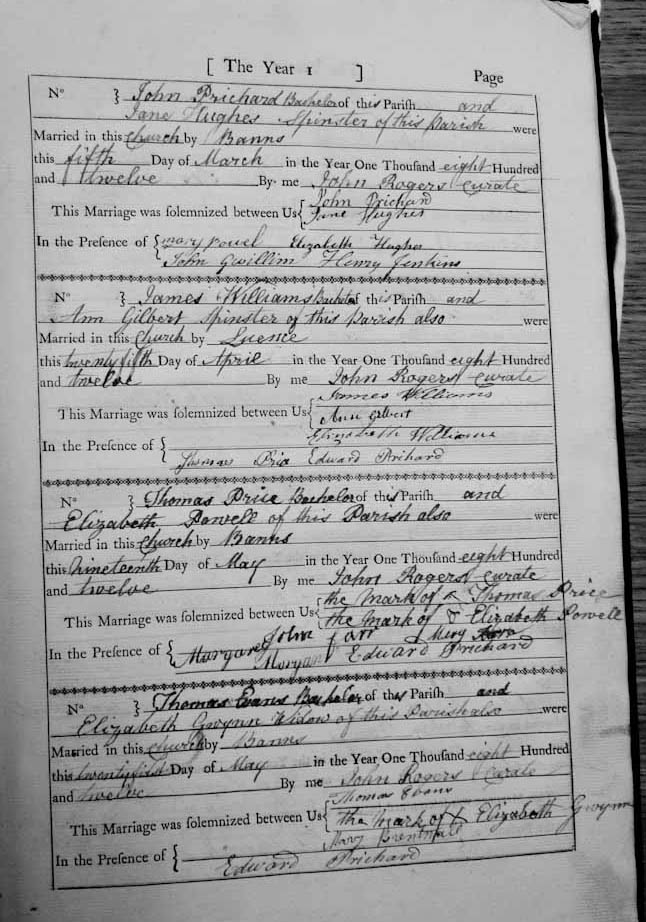 [ The Year 1 ] Page
No } John Prichard Bachelor of this Parish and
Jane Hughes Spinster of this Parish were
Married in this Church by Banns
this fifth Day of March in the Year One Thousand eight Hundred
and twelve By me John Rogers Curate
This Marriage was solemnized between Us { John Prichard
Jane Hughes
In the Presence of { Mary Powel Elizabeth Hughes
John Gwillim Henry Jenkins
No } James Williams Bachelor of this Parish and
Ann Gilbert Spinster of this Parish also were
Married in this Church by Lucence
this twenty fifth Day of April in the Year One Thousand eight Hundred
and twelve By me John Rogers Curate
This Marriage was solemnized between Us { James Williams
Ann Gilbert
In the Presence of { Elizabeth Williams
Thomas Edward Prichard
No } Thomas Price Bachelor of this Parish and
Elizabeth Powell of this Parish also were
Married in this Church by Banns
this Nineteenth Day of May in the Year One Thousand eight Hundred
and twelve By me John Rogers Curate
This Marriage was solemnized between Us { the Mark of Thomas Price
the Mark of Elizabeth Powell
In the Presence of { John Mary
Morgan Morgan Edward Prichard
No } Thomas Evans Bachelor of this Parish and
Elizabeth Gwynn Widow of this Parish also were
Married in this Church by Banns
this twenty first Day of May in the Year One Thousand eight Hundred
and twelve By me John Rogers Curate
This Marriage was solemnized between Us { Thomas Evans
the Mark of X Elizabeth Gwynn
In the Presence of { Mary
Edward Prichard